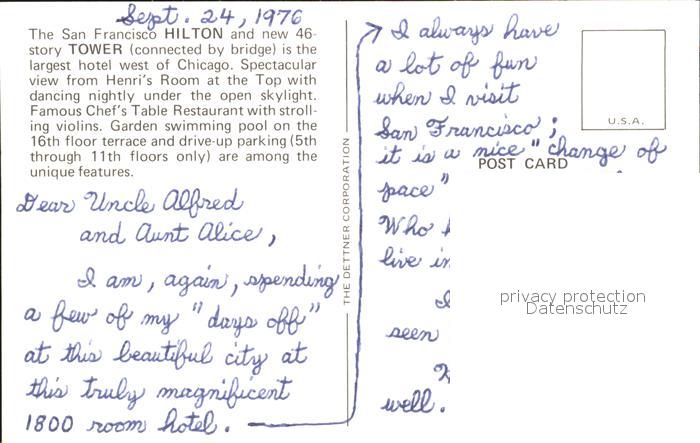 Sept. 24, 1976
The San Francisco HILTON and new 46-
story TOWER (connected by bridge) is the
largest hotel west of Chicago. Spectacular
view from Henri's Room at the Top with
dancing nightly under the open skylight.
Famous Chef's Table Restaurant with stroll-
ing violins. Garden swimming pool on the
16th floor terrace and drive-up parking (5th
through 11th floors only) are among the
unique features.
Dear Uncle Alfred
and Aunt Alice,
I am, again, spending
a few of my "days off"
at this beautiful city at
this truly magnificent
1800 room hotel.
THE DETTNER CORPORATION
I always have
a lot of fun
when I visit
San Francisco;
it is a nice "change of
pace"
Who
live in
I
seen
well.
U.S.A.
POST CARD
privacy protection
Datenschutz